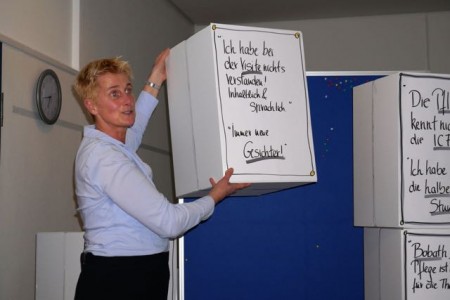 "Ich habe bei
der Visite nichts
verstanden!
Inhaltlich &
Sprachlich"
"Immer neue
Gesichter!"
Die
kennt
die IC
"Ich habe
die halbe
Stun
Bobath
Pflege ist
für die The